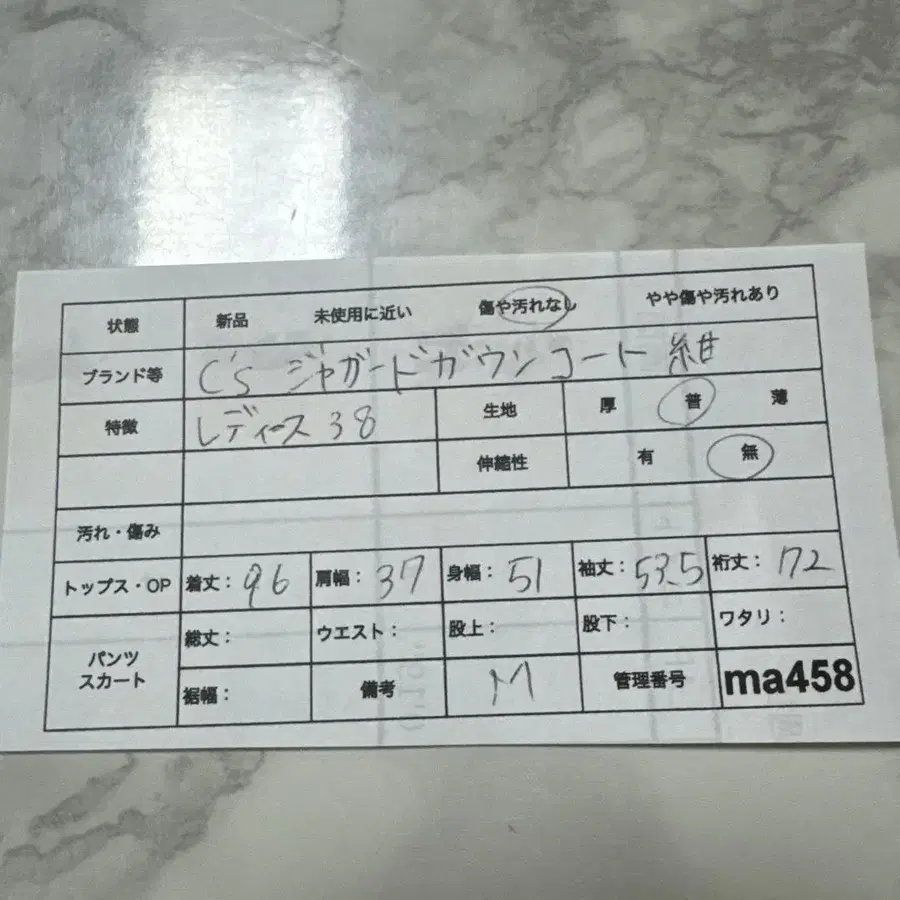 状態 新品 未使用に近い 傷や汚れなし やや傷や汚れあり
ブランド等 C's ジャガードガウンコート 紺
特徴 レディース 38 生地 厚 普 薄
伸縮性 有 無
汚れ・傷み
トップス・OP 着丈: 96 肩幅: 37 身幅: 51 袖丈: 53.5 裄丈: 172
パンツ スカート 総丈: ウエスト: 股上: 股下: ワタリ:
裾幅: 備考 M 管理番号 ma458